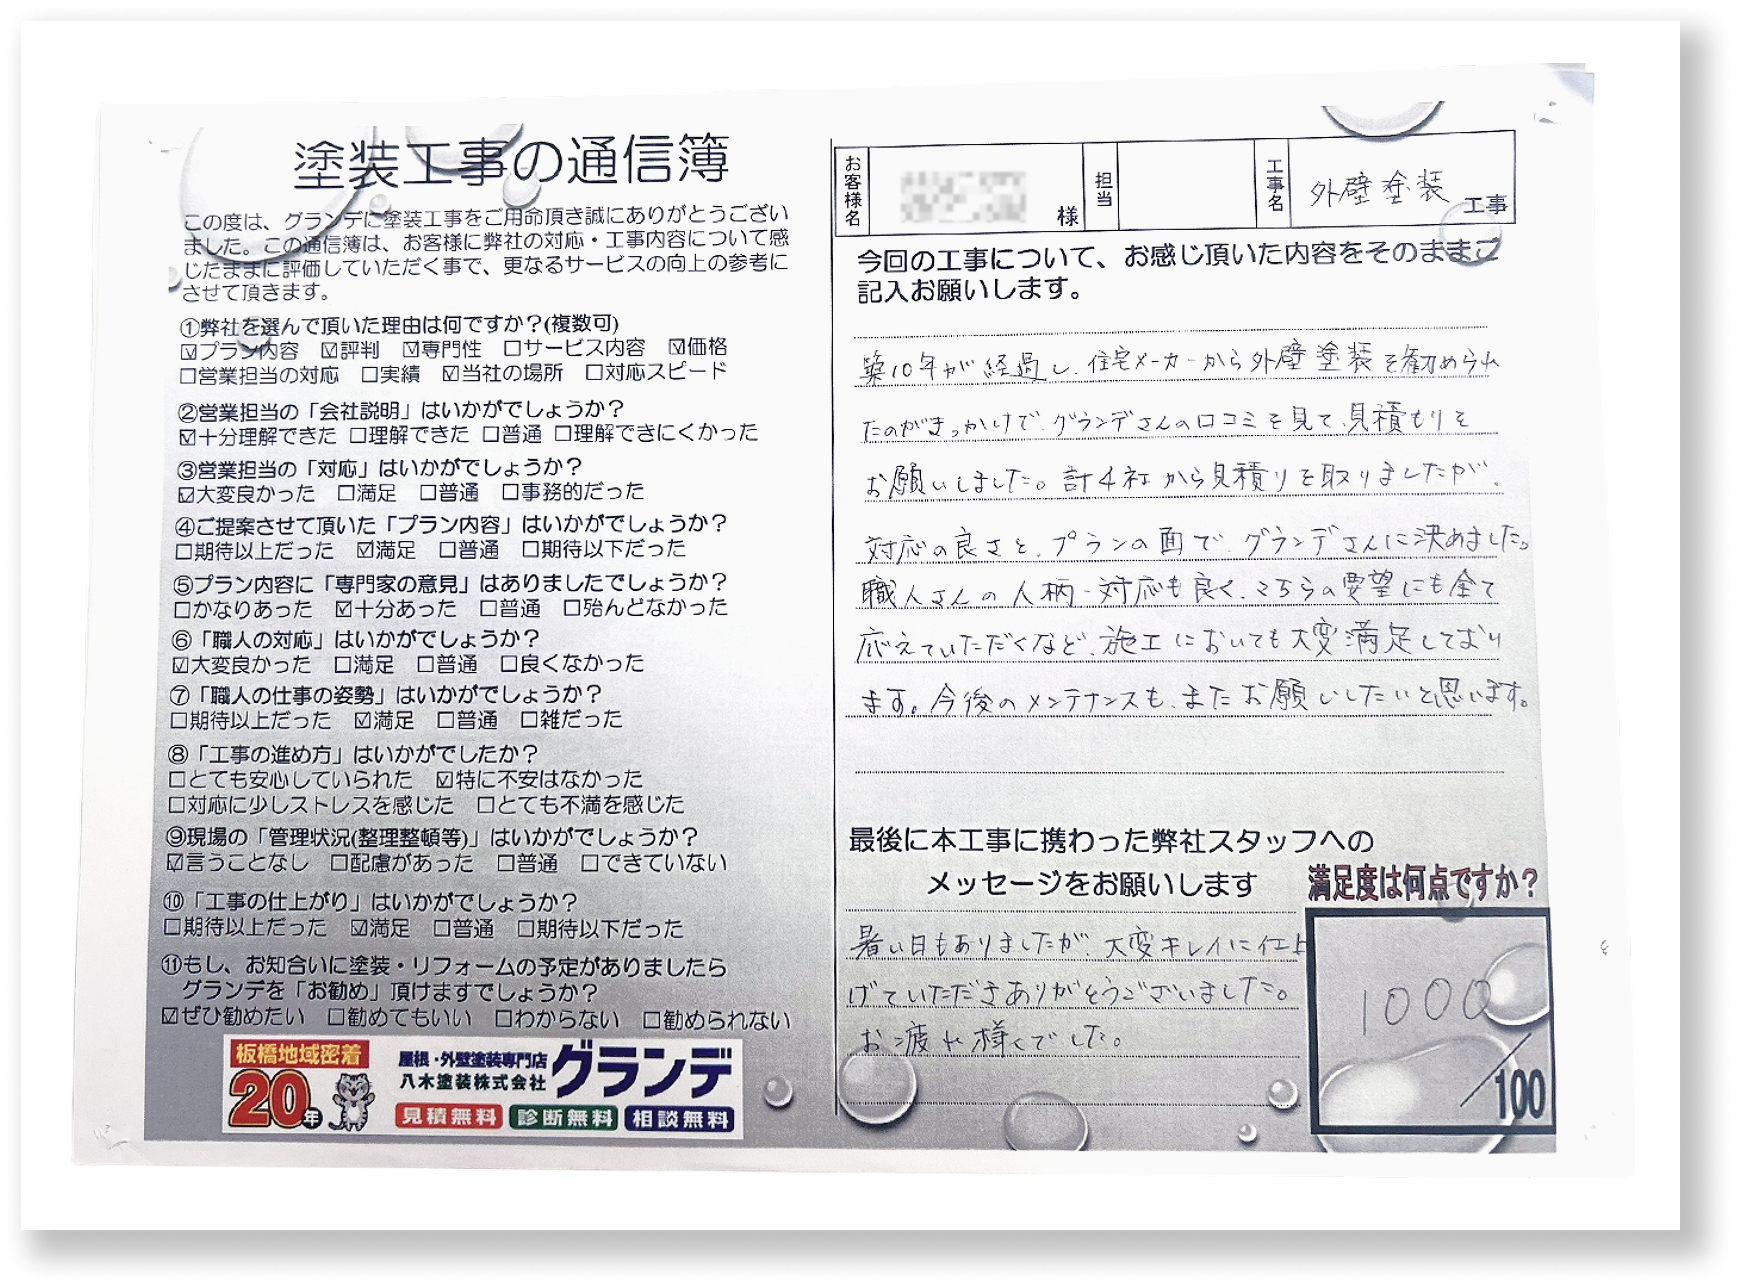 塗装工事の通信簿
この度は、グランデに塗装工事をご用命頂き誠にありがとうござい
ました。この通信簿は、お客様に弊社の対応・工事内容について感
じたままに評価していただく事で、更なるサービスの向上の参考に
させて頂きます。
①弊社を選んで頂いた理由は何ですか？(複数可)
☑プラン内容 ☑評判 ☑専門性 □サービス内容 ☑価格
□営業担当の対応 □実績 ☑当社の場所 □対応スピード
②営業担当の「会社説明」はいかがでしょうか？
☑十分理解できた □理解できた □普通 □理解できにくかった
③営業担当の「対応」はいかがでしょうか？
☑大変良かった □満足 □普通 □事務的だった
④ご提案させて頂いた「プラン内容」はいかがでしょうか？
□期待以上だった ☑満足 □普通 □期待以下だった
⑤プラン内容に「専門家の意見」はありましたでしょうか？
□かなりあった ☑十分あった □普通 □殆んどなかった
⑥「職人の対応」はいかがでしょうか？
☑大変良かった □満足 □普通 □良くなかった
⑦「職人の仕事の姿勢」はいかがでしょうか？
□期待以上だった ☑満足 □普通 □雑だった
⑧「工事の進め方」はいかがでしたか？
□とても安心していられた ☑特に不安はなかった
□対応に少しストレスを感じた □とても不満を感じた
⑨現場の「管理状況(整理整頓等)」はいかがでしょうか？
☑言うことなし □配慮があった □普通 □できていない
⑩「工事の仕上がり」はいかがでしょうか？
□期待以上だった ☑満足 □普通 □期待以下だった
⑪もし、お知合いに塗装・リフォームの予定がありましたら
グランデを「お勧め」頂けますでしょうか？
☑ぜひ勧めたい □勧めてもいい □わからない □勧められない
板橋地域密着
20年
屋根・外壁塗装専門店
八木塗装株式会社
グランデ
見積無料 診断無料 相談無料
お客様名 様 担当 工事名 外壁塗装 工事
今回の工事について、お感じ頂いた内容をそのままご
記入お願いします。
築10年が経過し、住宅メーカーから外壁塗装を勧められ
たのがきっかけで、グランデさんの口コミを見て、見積もりを
お願いしました。計4社から見積りを取りましたが、
対応の良さと、プランの面で、グランデさんに決めました。
職人さんの人柄・対応も良く、こちらの要望にも全て
応えていただくなど、施工においても大変満足しており
ます。今後のメンテナンスも、またお願いしたいと思います。
最後に本工事に携わった弊社スタッフへの
メッセージをお願いします
暑い日もありましたが、大変キレイに仕上
げていただきありがとうございました。
お疲れ様でした。
満足度は何点ですか？
1000
/100